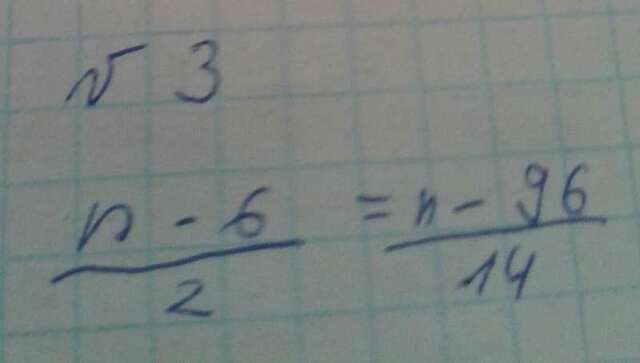 № 3
n - 6 = n - 96
2 14